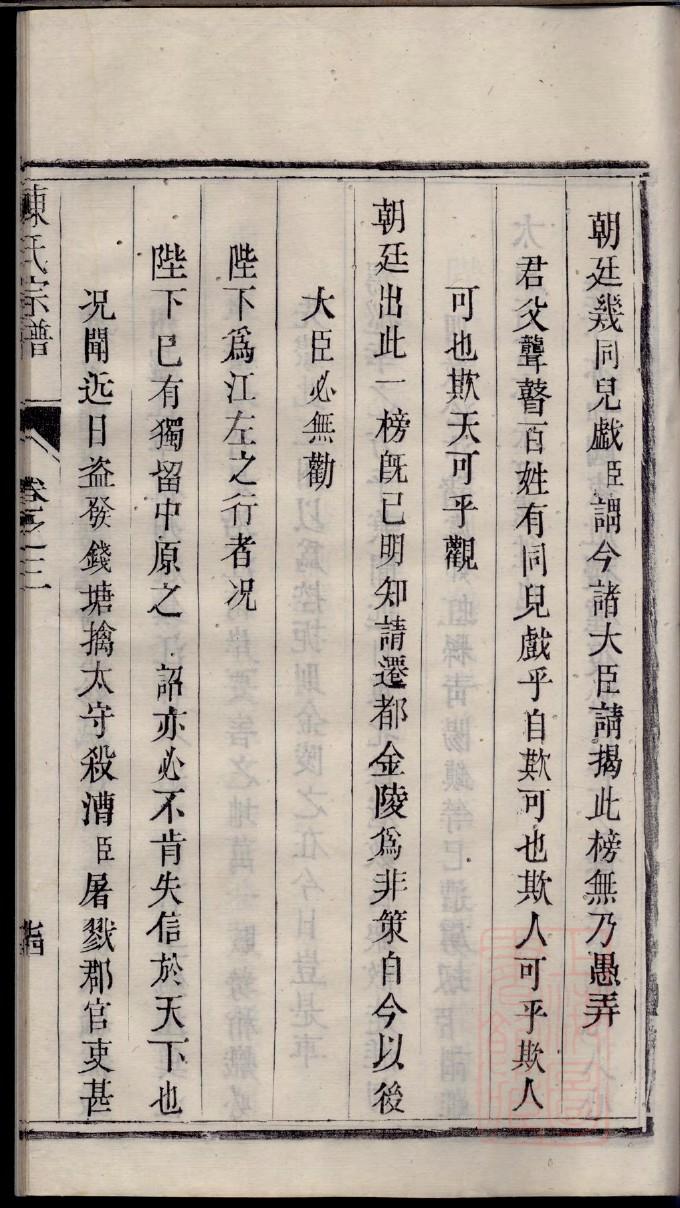 朝廷幾同兒戯臣謂今諸大臣請揭此榜無乃愚弄
君父聾瞽百姓有同兒戲乎自欺可也欺人可乎欺人
可也欺天可乎觀
朝廷出此一榜既已明知請遷都金陵爲非策自今以後
大臣必無勸
陛下爲江左之行者况
陛下已有獨留中原之詔亦必不肯失信於天下也
况聞近日盗發錢塘擒太守殺漕臣屠戮郡官吏甚
陳氏宗譜
卷之三